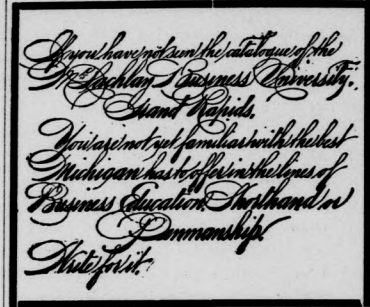 If you have not seen the catalogue of the
McLachlan Business University.
Grand Rapids.
You are not yet familiar with the best
Michigan has to offer in the lines of
Business Education, Shorthand or
Penmanship.
Write for it.